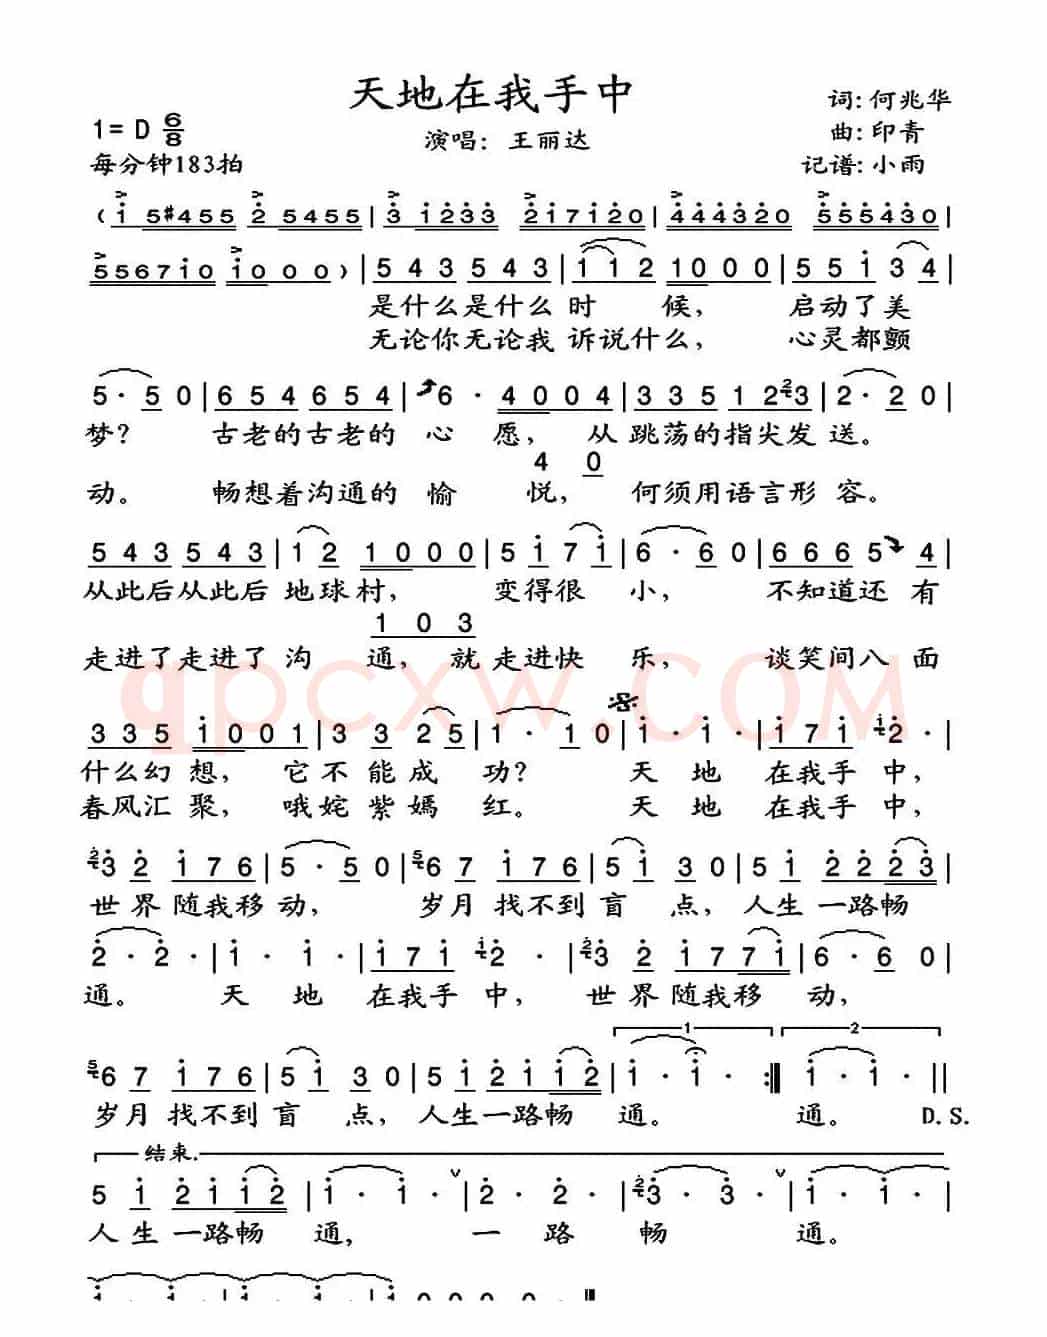 天地在我手中
词: 何兆华
1= D 6/8
演唱：王丽达
曲: 印青
每分钟183拍
记谱: 小雨
( i 5#455 2 5455 | 3 1233 217120 | 444320 555430 |
556710 1000 ) | 5 4 3 5 4 3 | 1 1 2 1000 | 5 5 i 3 4 |
是什么是什么 时 候， 启动了美
无论你无论我 诉说什么， 心灵都颤
5 · 5 0 | 6 5 4 6 5 4 | 6 · 4 0 0 4 | 3 3 5 1 2 3 | 2 · 2 0 |
梦? 古老的古老的 心 愿， 从跳荡的指尖发 送。
4 0
动。 畅想着沟通的 愉 悦， 何须用语言形 容。
5 4 3 5 4 3 | 1 2 1 0 0 0 | 5 i 7 i | 6 · 6 0 | 6 6 6 5 4 |
从此后从此后 地球村， 变得很 小， 不知道还 有
1 0 3
走进了走进了 沟 通，就走进快 乐， 谈笑间八 面
qpcxw.COM
3 3 5 i 0 0 1 | 3 3 2 5 | 1 · 1 0 | i · i · | i 7 i 2 · |
什么幻 想， 它不能成 功? 天 地 在我手 中，
春风汇 聚， 哦姹紫嫣 红。 天 地 在我手 中，
3 2 i 7 6 | 5 · 5 0 | 6 7 i 7 6 | 5 i 3 0 | 5 i 2 2 2 3 |
世界随我移 动， 岁月 找不到 盲 点， 人生 一路畅
2 · 2 · | i · i · | i 7 i 2 · | 3 2 i 7 7 i | 6 · 6 0 |
通。 天 地 在我手 中， 世界随我移 动，
1 2
6 7 i 7 6 | 5 i 3 0 | 5 i 2 i i 2 | i · i · :| i · i · ||
岁月 找不到 盲 点， 人生一路畅 通。 通。 D.S.
结束.
5 i 2 i i 2 | i · i · | 2 · 2 · | 3 · 3 · | i · i · |
人生 一路畅 通， 一 路 畅 通。